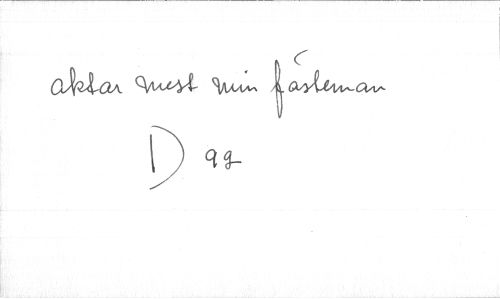 aktar mest min fästeman
D 99